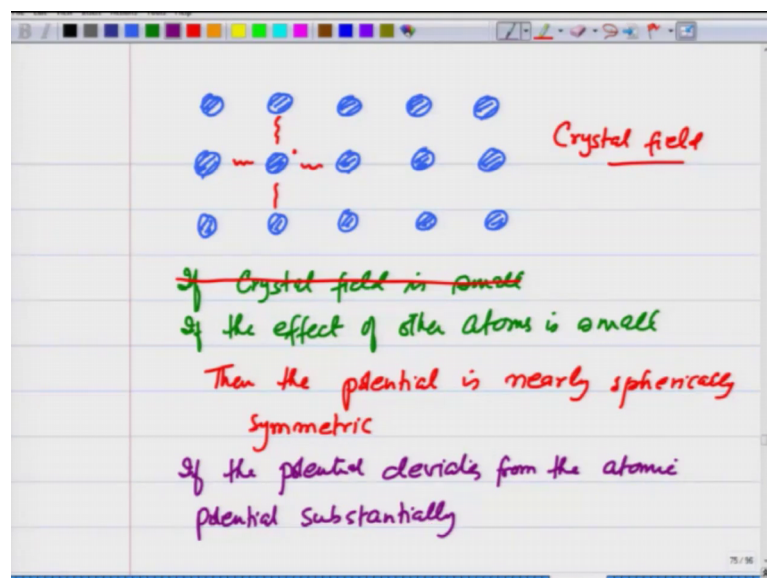 Crystal field
If Crystal field is small
If the effect of other atoms is small
Then the potential is nearly spherically
symmetric
If the potential deviates from the atomic
potential substantially
75/96